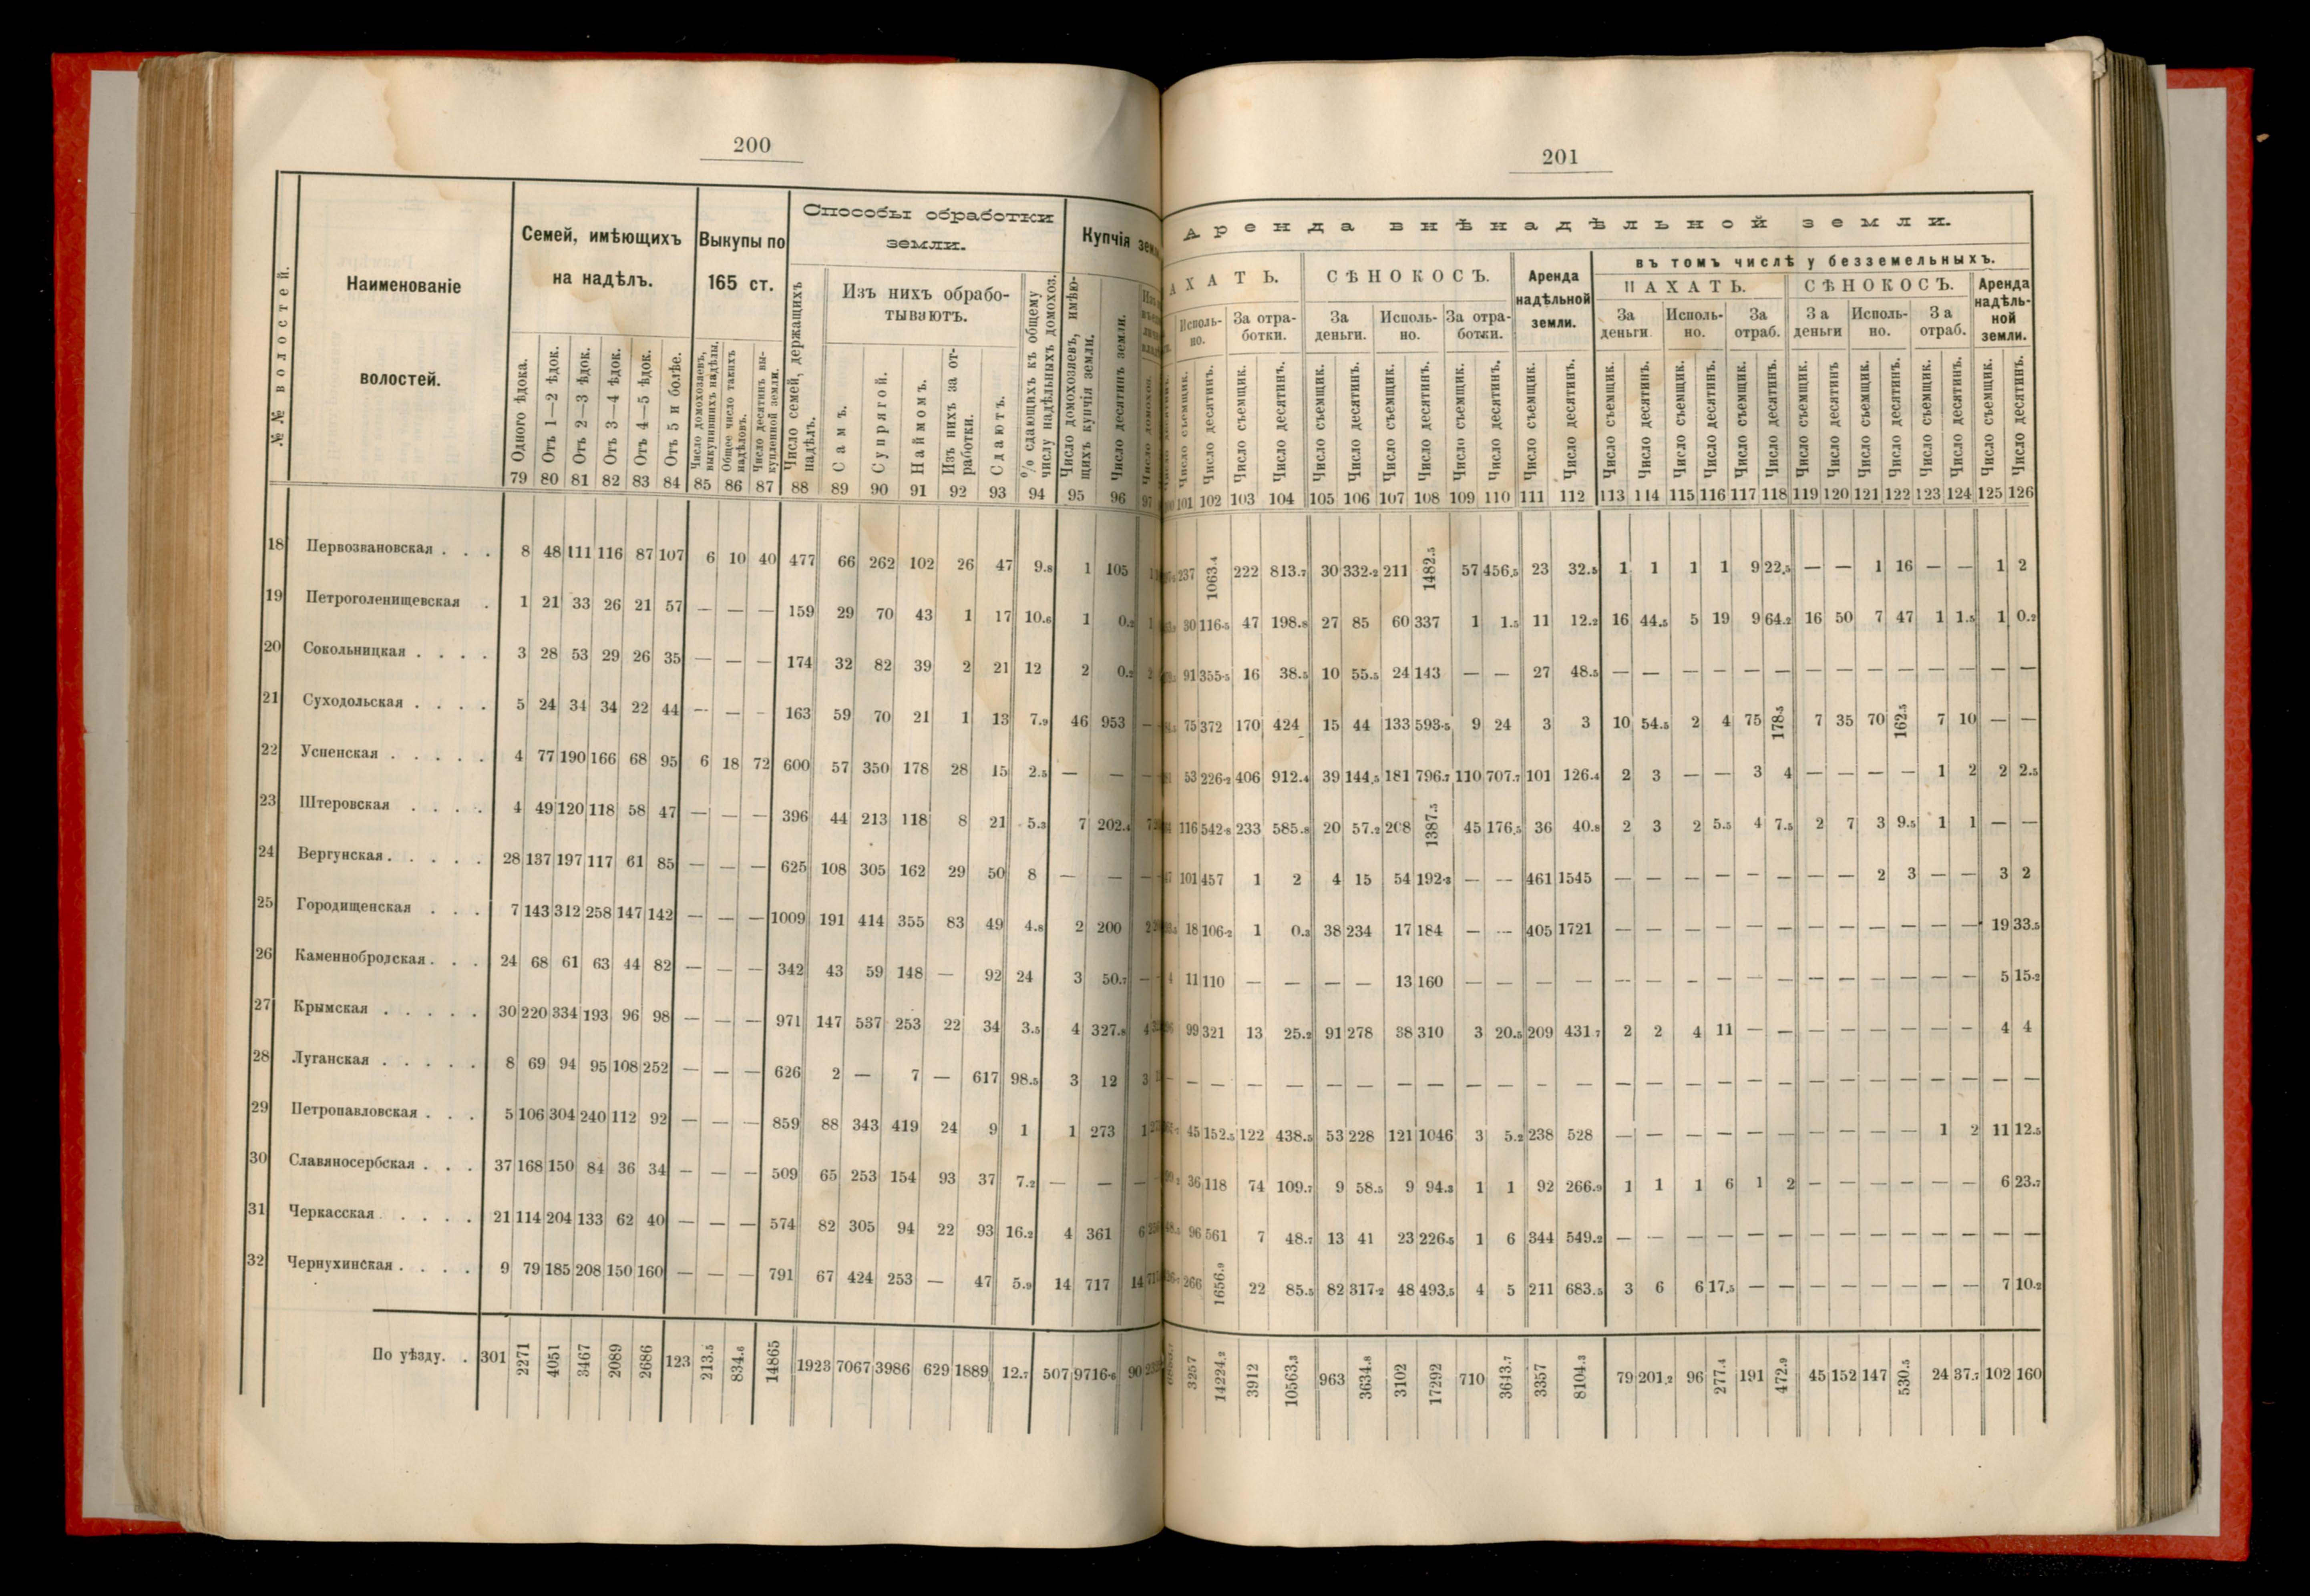 200
№№ волостей.
Наименованіе
волостей.
Семей, имѣющихъ
на надѣлъ.
Выкупы по
165 ст.
Способы обработки
земли.
Купчія
Одного ѣдока.
Отъ 1—2 ѣдок.
Отъ 2—3 ѣдок.
Отъ 3—4 ѣдок.
Отъ 4—5 ѣдок.
Отъ 5 и болѣе.
Число домохозяевъ, выкупившихъ надѣлы.
Общее число такихъ надѣловъ.
Число десятинъ выкупленной земли.
Число семей, держащихъ надѣлъ.
Изъ нихъ обрабо-
тываютъ.
Самъ.
Супрягой.
Наймомъ.
Изъ нихъ за отработки.
Сдаютъ.
% сдающихъ къ общему числу надѣльныхъ домохоз.
Число домохозяевъ, имѣющихъ купчія земли.
Число десятинъ земли.
79 80 81 82 83 84 85 86 87 88 89 90 91 92 93 94 95 96 97
18 Первозвановская . . . 8 48 111 116 87 107 6 10 40 477 66 262 102 26 47 9.8 1 105
19 Петроголенищевская . 1 21 33 26 21 57 — — — 159 29 70 43 1 17 10.6 1 0.2 1
20 Сокольницкая . . . . 3 28 53 29 26 35 — — — 174 32 82 39 2 21 12 2 0.2
21 Суходольская . . . . 5 24 34 34 22 44 — — — 163 59 70 21 1 13 7.9 46 953 —
22 Успенская . . . . . 4 77 190 166 68 95 6 18 72 600 57 350 178 28 15 2.5 — — —
23 Штеровская . . . . 4 49 120 118 58 47 — — — 396 44 213 118 8 21 5.3 7 202.4 7
24 Вергунская . . . . . 28 137 197 117 61 85 — — — 625 108 305 162 29 50 8 — — —
25 Городищенская . . . 7 143 312 258 147 142 — — — 1009 191 414 355 83 49 4.8 2 200 2
26 Каменнобродская . . . 24 68 61 63 44 82 — — — 342 43 59 148 — 92 24 3 50.7 —
27 Крымская . . . . . 30 220 334 193 96 98 — — — 971 147 537 253 22 34 3.5 4 327.8 4
28 Луганская . . . . . 8 69 94 95 108 252 — — — 626 2 — 7 — 617 98.5 3 12 3
29 Петропавловская . . . 5 106 304 240 112 92 — — — 859 88 343 419 24 9 1 1 273 1
30 Славяносербская . . . 37 168 150 84 36 34 — — — 509 65 253 154 93 37 7.2 — — —
31 Черкасская . . . . . 21 114 204 133 62 40 — — — 574 82 305 94 22 93 16.2 4 361 6
32 Чернухинская . . . . 9 79 185 208 150 160 — — — 791 67 424 253 — 47 5.9 14 717 14
По уѣзду. . 301 2271 4051 3467 2089 2686 123 213.5 834.6 14865 1923 7067 3986 629 1889 12.7 507 9716.6 90
201
Аренда внѣнадѣльной земли.
АХАТЬ.
СѢНОКОСЪ.
Аренда
надѣльной
земли.
въ томъ числѣ у безземельныхъ.
ПАХАТЬ.
СѢНОКОСЪ.
Аренда
надѣль-
ной
земли.
Исполь-
но.
За отра-
ботки.
За
деньги.
Исполь-
но.
За отра-
ботки.
За
деньги.
Исполь-
но.
За
отраб.
За
деньги
Исполь-
но.
За
отраб.
Число съемщик.
Число десятинъ.
Число съемщик.
Число десятинъ.
Число съемщик.
Число десятинъ.
Число съемщик.
Число десятинъ.
Число съемщик.
Число десятинъ.
Число съемщик.
Число десятинъ.
Число съемщик.
Число десятинъ.
Число съемщик.
Число десятинъ.
Число съемщик.
Число десятинъ.
Число съемщик.
Число десятинъ
Число съемщик.
Число десятинъ.
Число съемщик.
Число десятинъ.
Число съемщик.
Число десятинъ.
101 102 103 104 105 106 107 108 109 110 111 112 113 114 115 116 117 118 119 120 121 122 123 124 125 126
237 1063.4 222 813.7 30 332.2 211 1482.5 57 456.5 23 32.5 1 1 1 1 9 22.5 — — 1 16 — — 1 2
30 116.5 47 198.8 27 85 60 337 1 1.5 11 12.2 16 44.5 5 19 9 64.2 16 50 7 47 1 1.5 1 0.2
91 355.5 16 38.5 10 55.5 24 143 — — 27 48.5 — — — — — — — — — — — — — —
75 372 170 424 15 44 133 593.5 9 24 3 3 10 54.5 2 4 75 178.5 7 35 70 162.5 7 10 — —
53 226.2 406 912.4 39 144.5 181 796.7 110 707.7 101 126.4 2 3 — — 3 4 — — — — 1 2 2 2.5
116 542.8 233 585.8 20 57.2 208 1387.5 45 176.5 36 40.8 2 3 2 5.5 4 7.5 2 7 3 9.5 1 1 — —
101 457 1 2 4 15 54 192.3 — — 461 1545 — — — — — — — — 2 3 — — 3 2
18 106.2 1 0.3 38 234 17 184 — — 405 1721 — — — — — — — — — — — — 19 33.5
11 110 — — — — 13 160 — — — — — — — — — — — — — — — — 5 15.2
99 321 13 25.2 91 278 38 310 3 20.5 209 431.7 2 2 4 11 — — — — — — — — 4 4
— — — — — — — — — — — — — — — — — — — — — — — — — —
45 152.5 122 438.5 53 228 121 1046 3 5.2 238 528 — — — — — — — — — — 1 2 11 12.5
36 118 74 109.7 9 58.5 9 94.3 1 1 92 266.9 1 1 1 6 1 2 — — — — — — 6 23.7
96 561 7 48.7 13 41 23 226.5 1 6 344 549.2 — — — — — — — — — — — — — —
266 1656.9 22 85.5 82 317.2 48 493.5 4 5 211 683.5 3 6 6 17.5 — — — — — — — — 7 10.2
3257 14224.2 3912 10563.3 963 3634.8 3102 17292 710 3643.7 3357 8104.3 79 201.2 96 277.4 191 472.9 45 152 147 530.5 24 37.7 102 160